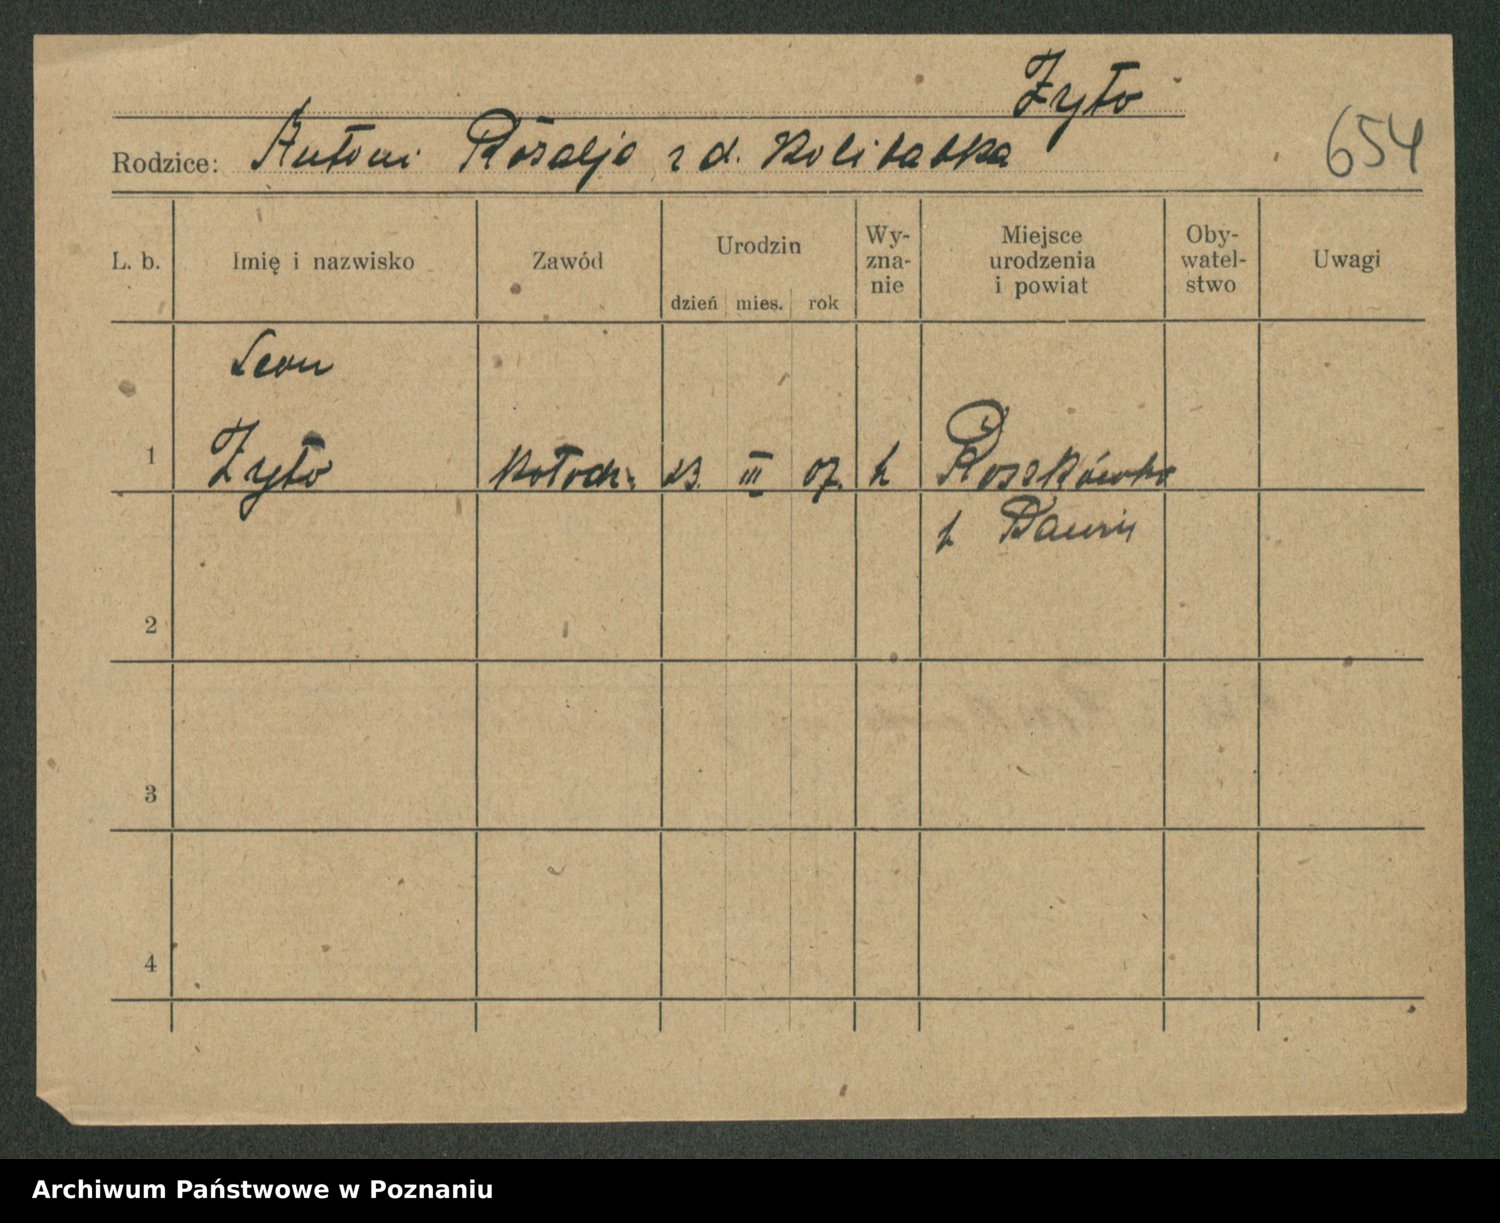 Żyto
Rodzice: Antoni Rozalja z d. Kolibabka
654
L. b. Imię i nazwisko Zawód Urodzin dzień mies. rok Wy-zna-nie Miejsce urodzenia i powiat Oby-watel-stwo Uwagi
Leon
1 Żyto Kołodz. 23. III 07. k Roszkówko
p. Rawicz
2
3
4
Archiwum Państwowe w Poznaniu